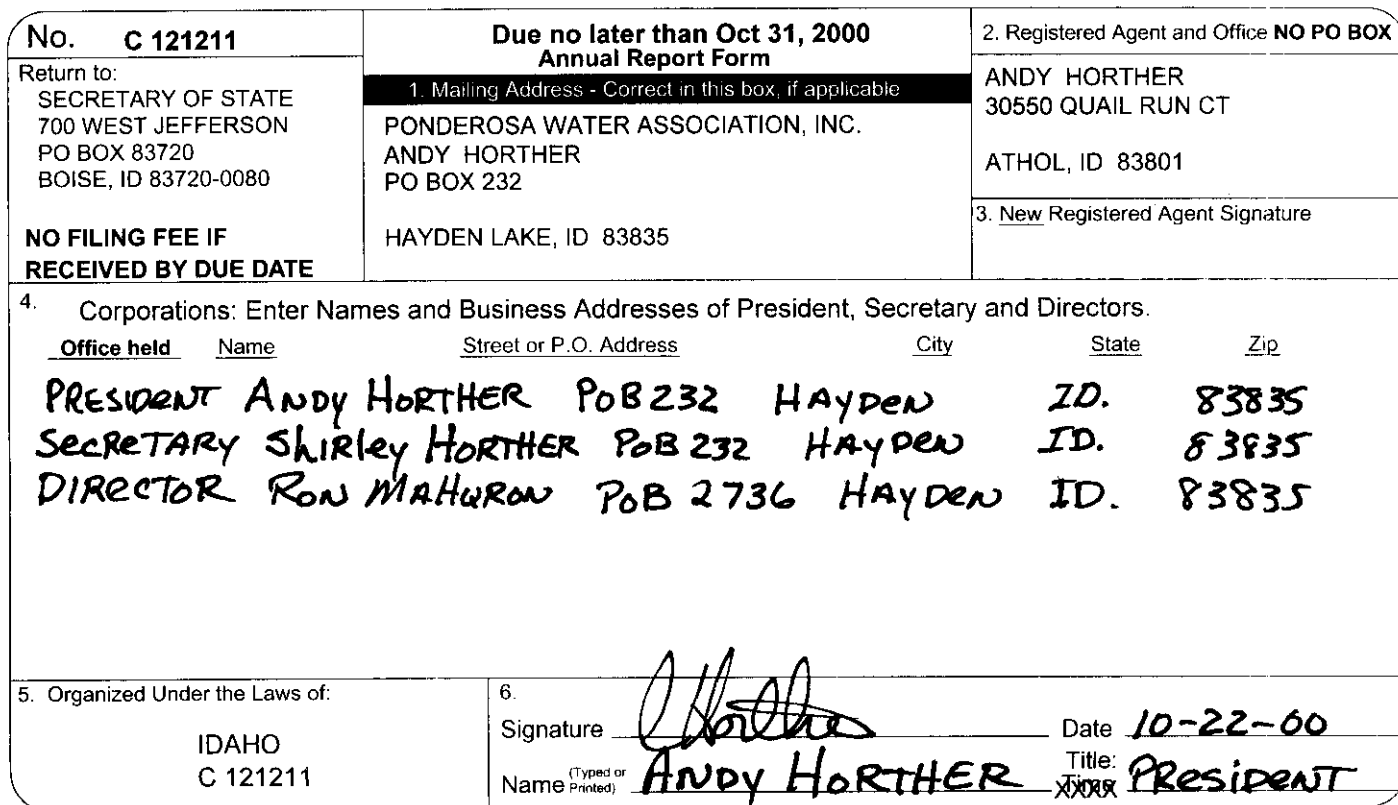 No. C 121211
Return to:
SECRETARY OF STATE
700 WEST JEFFERSON
PO BOX 83720
BOISE, ID 83720-0080
NO FILING FEE IF
RECEIVED BY DUE DATE
Due no later than Oct 31, 2000
Annual Report Form
1. Mailing Address - Correct in this box, if applicable
PONDEROSA WATER ASSOCIATION, INC.
ANDY HORTHER
PO BOX 232
HAYDEN LAKE, ID 83835
2. Registered Agent and Office NO PO BOX
ANDY HORTHER
30550 QUAIL RUN CT
ATHOL, ID 83801
3. New Registered Agent Signature
4. Corporations: Enter Names and Business Addresses of President, Secretary and Directors.
Office held Name Street or P.O. Address City State Zip
PRESIDENT ANDY HORTHER POB 232 HAYDEN ID. 83835
SECRETARY SHIRLEY HORTHER POB 232 HAYDEN ID. 83835
DIRECTOR RON MAHURON POB 2736 HAYDEN ID. 83835
5. Organized Under the Laws of:
IDAHO
C 121211
6.
Signature Date 10-22-00
Name (Typed or Printed) ANDY HORTHER Title: PRESIDENT